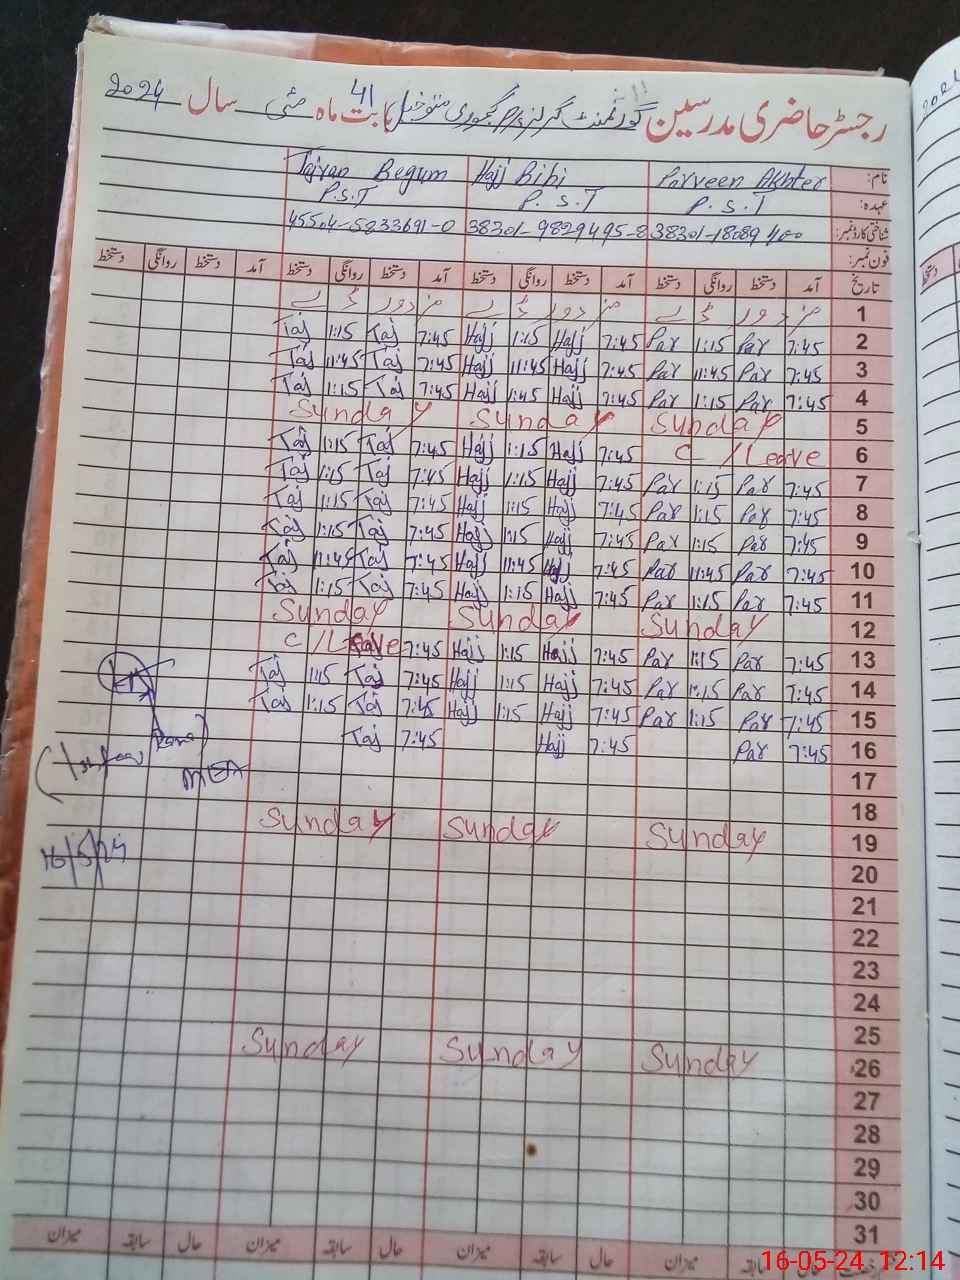 رجسٹر حاضری مدرسین گورنمنٹ گرلز پرائمری بابت ماہ مئی سال 2024
41
نام: Parveen Akhter Hajj Bibi Tajran Begum
عہدہ: P.S.T P.S.T P.S.T
شناختی کارڈ نمبر: 38301-9829495-8 45504-5833691-0
فون نمبر:
تاریخ آمد دستخط روانگی دستخط آمد دستخط روانگی دستخط آمد دستخط روانگی دستخط آمد دستخط روانگی دستخط
1 مزدور ڈے مزدور ڈے مزدور ڈے
2 7:45 Par 1:15 Par 7:45 Hajj 1:15 Hajj 7:45 Taj 1:15 Taj
3 7:45 Par 11:45 Par 7:45 Hajj 11:45 Hajj 7:45 Taj 11:45 Taj
4 7:45 Par 1:15 Par 7:45 Hajj 1:45 Hajj 7:45 Taj 1:15 Taj
5 Sunday Sunday Sunday
6 C/Leave 7:45 Hajj 1:15 Hajj 7:45 Taj 1:15 Taj
7 7:45 Par 1:15 Par 7:45 Hajj 1:15 Hajj 7:45 Taj 1:15 Taj
8 7:45 Par 1:15 Par 7:45 Hajj 1:15 Hajj 7:45 Taj 1:15 Taj
9 7:45 Par 1:15 Par 7:45 Hajj 1:15 Hajj 7:45 Taj 1:15 Taj
10 7:45 Par 11:45 Par 7:45 Hajj 11:45 Hajj 7:45 Taj 11:45 Taj
11 7:45 Par 1:15 Par 7:45 Hajj 1:15 Hajj 7:45 Taj 1:15 Taj
12 Sunday Sunday Sunday
13 7:45 Par 1:15 Par 7:45 Hajj 1:15 Hajj 7:45 C/Leave
14 7:45 Par 1:15 Par 7:45 Hajj 1:15 Hajj 7:45 Taj 1:15 Taj
15 7:45 Par 1:15 Par 7:45 Hajj 1:15 Hajj 7:45 Taj 1:15 Taj
16 7:45 Par 7:45 Hajj 7:45 Taj
17
MEA
18
19 Sunday Sunday Sunday
16/5/24
20
21
22
23
24
25
26 Sunday Sunday Sunday
27
28
29
30
31
حال سابقہ میزان حال سابقہ میزان حال سابقہ میزان
16-05-24 12:14